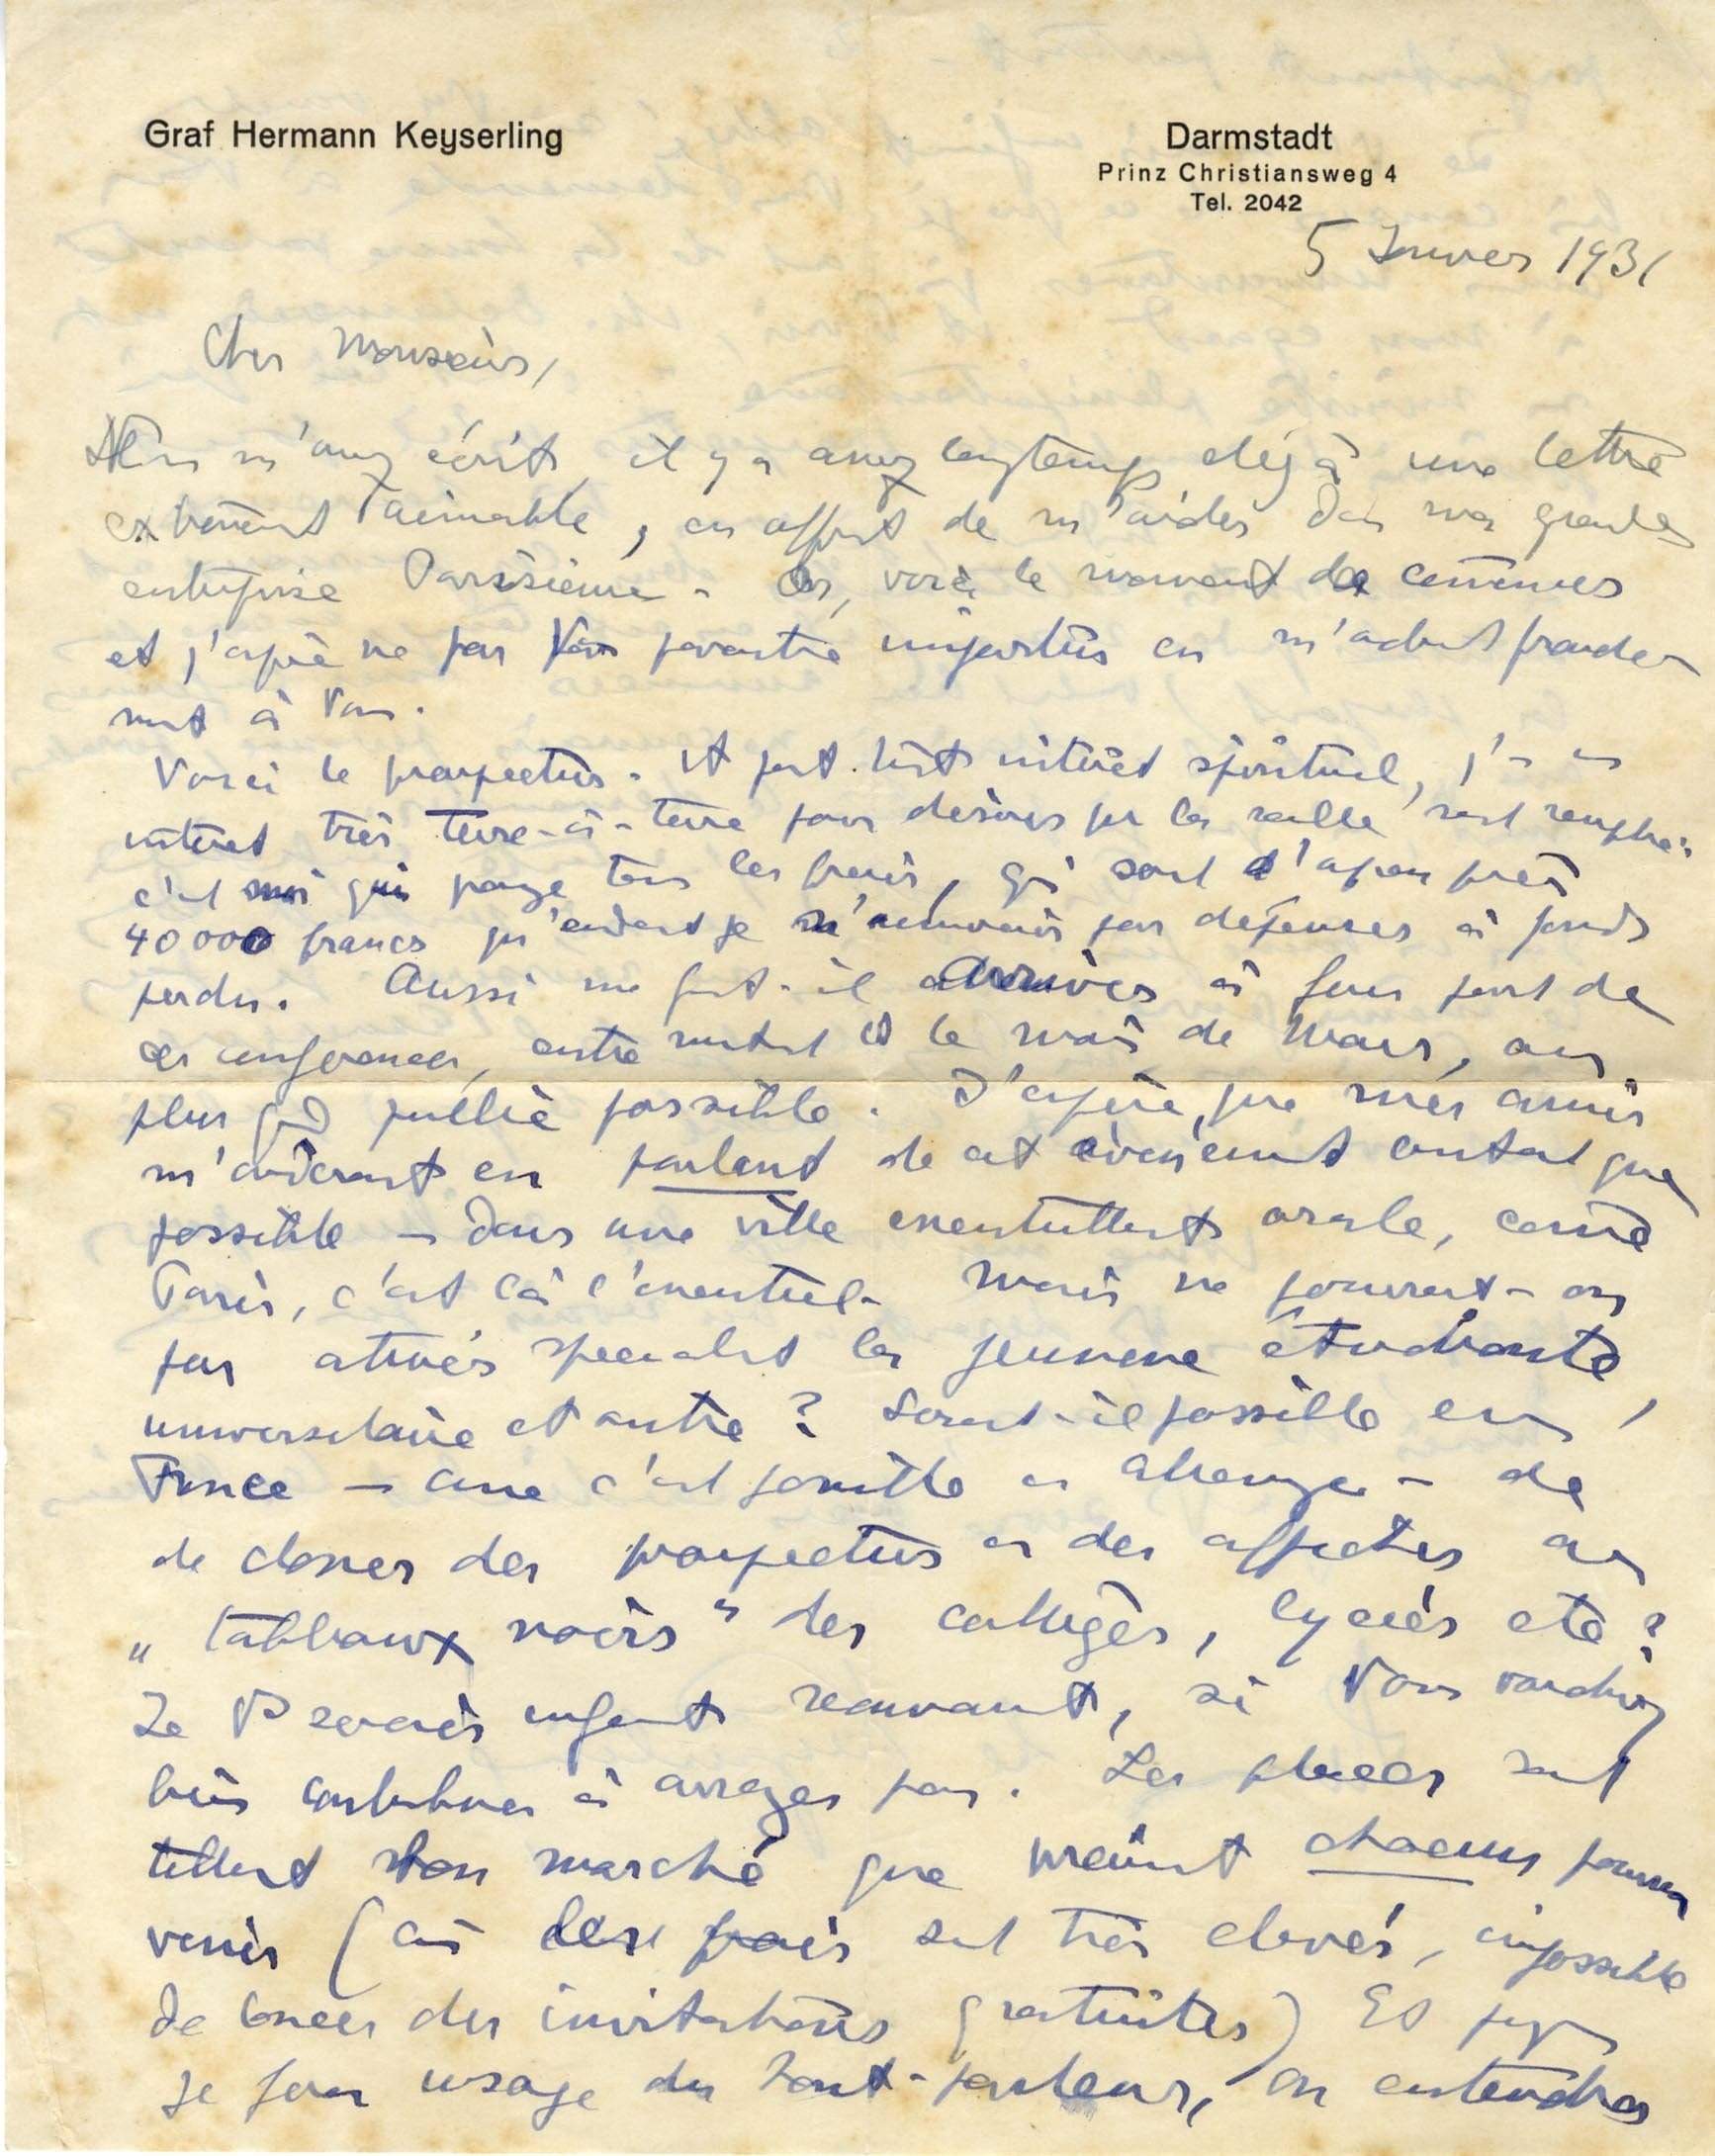 Graf Hermann Keyserling
Darmstadt
Prinz Christiansweg 4
Tel. 2042
5 Janvier 1931
Cher Monsieur,
Vous m'avez écrit, il y a assez longtemps déjà une lettre
extrêmement aimable, en offrant de m'aider dans ma grande
entreprise Parisienne. Or, voici le moment de commencer
et j'espère ne pas Vous paraître importun en m'adressant franche-
ment à Vous.
Voici le prospectus. A part tout intérêt spirituel, j'ai un
intérêt très terre-à-terre pour désirer que la salle soit remplie:
c'est moi qui paye tous les frais, qui sont d'à peu près
40000 francs qu'évidemment je n'aimerais pas dépenser à fonds
perdu. Aussi me faut-il arriver à faire part de
ces conférences, entre maintenant et le mois de Mars, au
plus grand public possible. J'espère, que mes amis
m'aideront en parlant de cet événement autant que
possible – dans une ville essentiellement orale, comme
Paris, c'est là l'essentiel. Mais ne pourrait-on
pas attirer spécialement la jeunesse étudiante
universitaire et autre? Serait-il possible en
France – comme c'est possible en Allemagne – de
de donner des prospectus et des affiches aux
„tableaux noirs" des collèges, lycées etc?
Je Vous serais infiniment reconnaissant, si Vous voudriez
bien contribuer à arranger ça. Les places sont
tellement bon marché que vraiment chacun pourra
venir (où les frais sont très élevés, impossible
de lancer des invitations gratuites) Et puisque
je fais usage du haut-parleur, on entendra